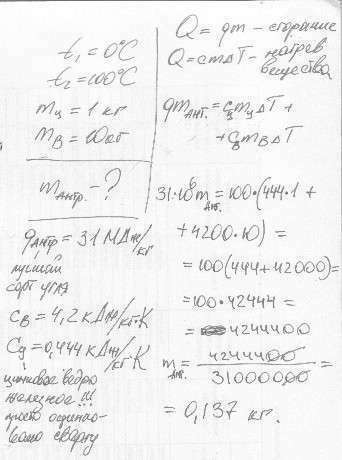 t₁ = 0°C
t₂ = 100°C
mц = 1 кг
mв = 10 кг
mантр. - ?
qантр = 31 МДж/кг
лучший
сорт угля
cв = 4,2 кДж/кг·К
cд = 0,444 кДж/кг·К
цинковое ведро
железное!!!
просто оцинко-
вано сверху
Q = qm – сгорание
Q = cmΔT – нагрев
вещества
qmант. = cцmцΔT +
+ cвmвΔT
31·10⁶mант. = 100·(444·1 +
+ 4200·10) =
= 100(444+42000) =
= 100·42444 =
= 4244400
mант. = 4244400/31000000 =
= 0,137 кг.